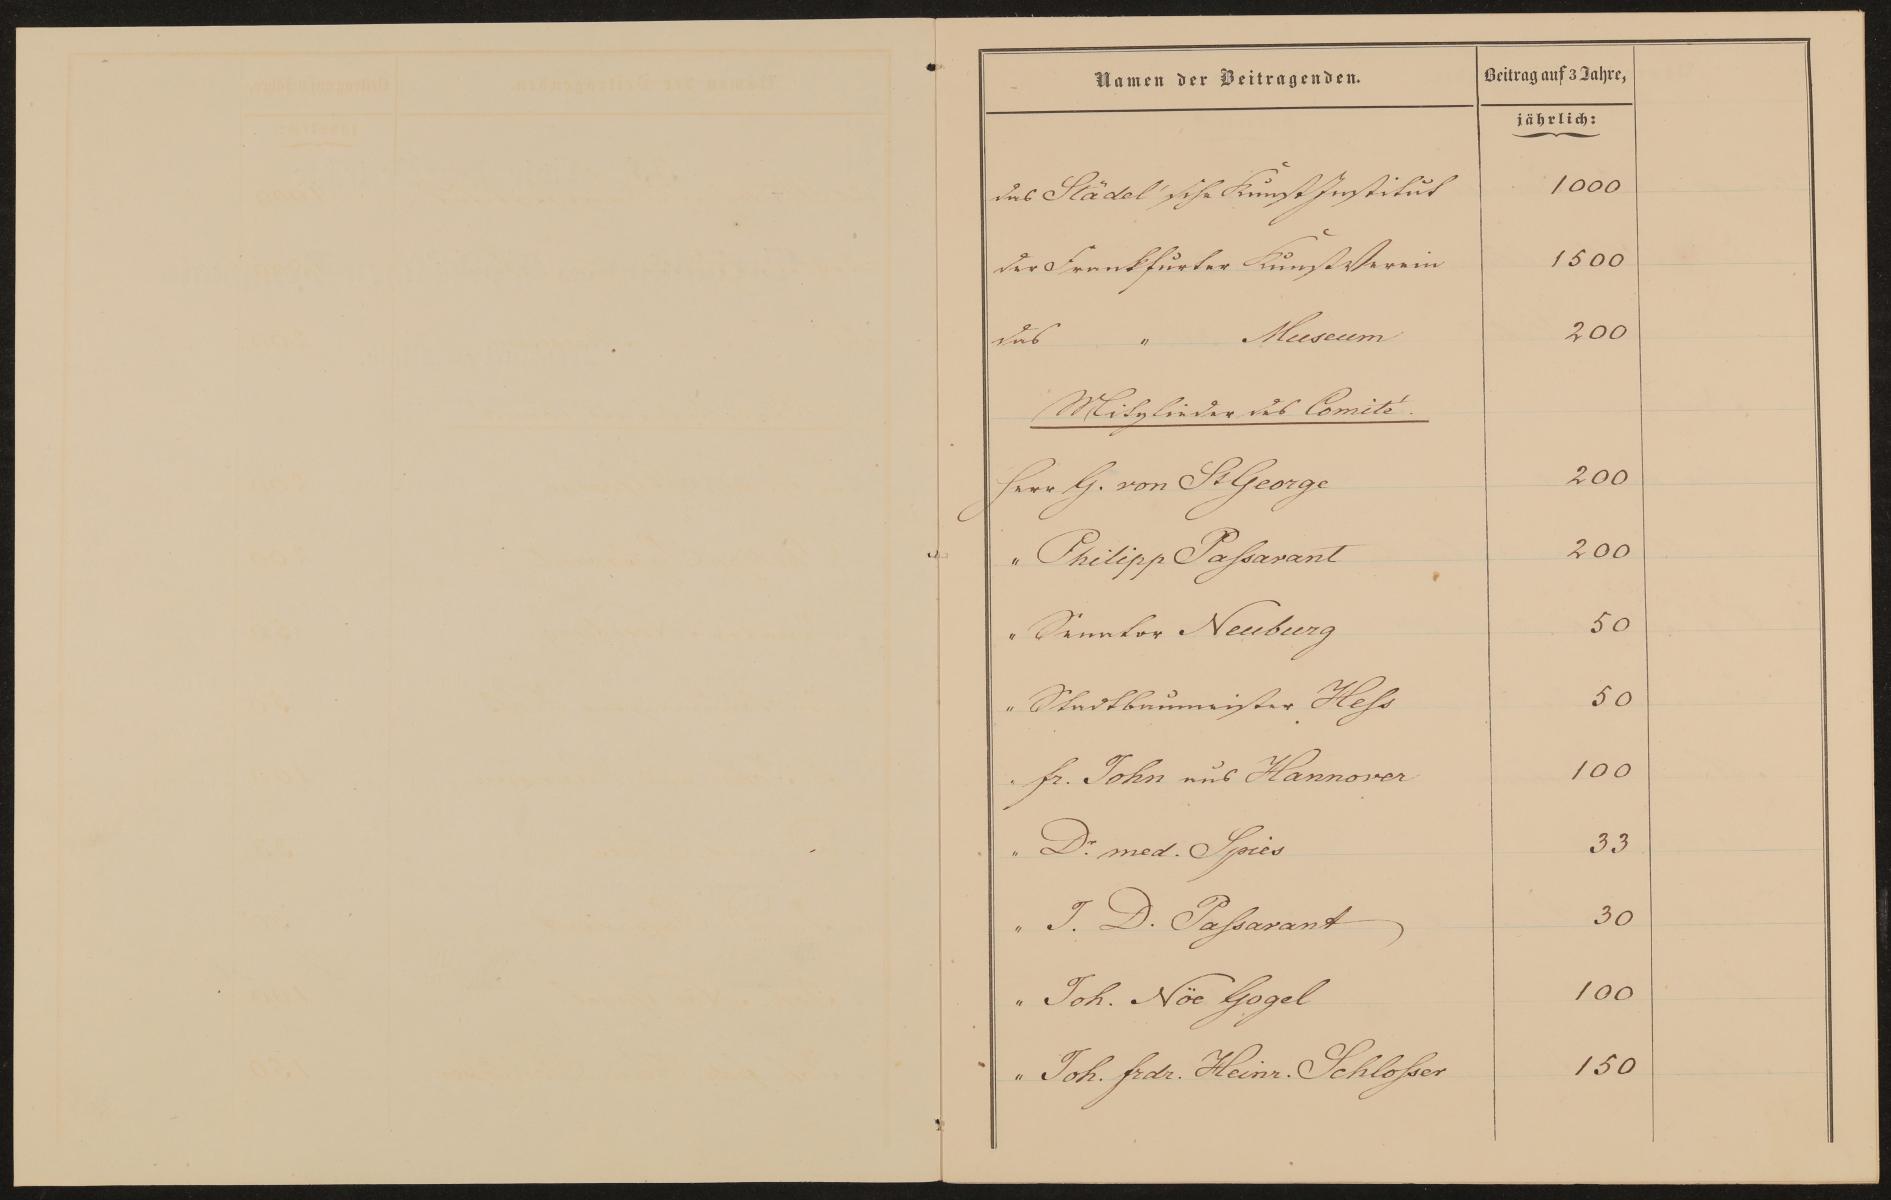 Namen der Beitragenden.
Beitrag auf 3 Jahre,
jährlich:
das Städel'sche Kunst Institut 1000
der Frankfurter Kunst Verein 1500
das " Museum 200
Mitglieder des Comité.
Herr G. von St George 200
" Philipp Paſsavant 200
" Senator Neuburg 50
" Stadtbaumeister Heſs 50
" fr. John aus Hannover 100
" Dr. med. Spies 33
" J. D. Paſsavant 30
" Joh. Nöe Gogel 100
" Joh. frdr. Heinr. Schloſser 150